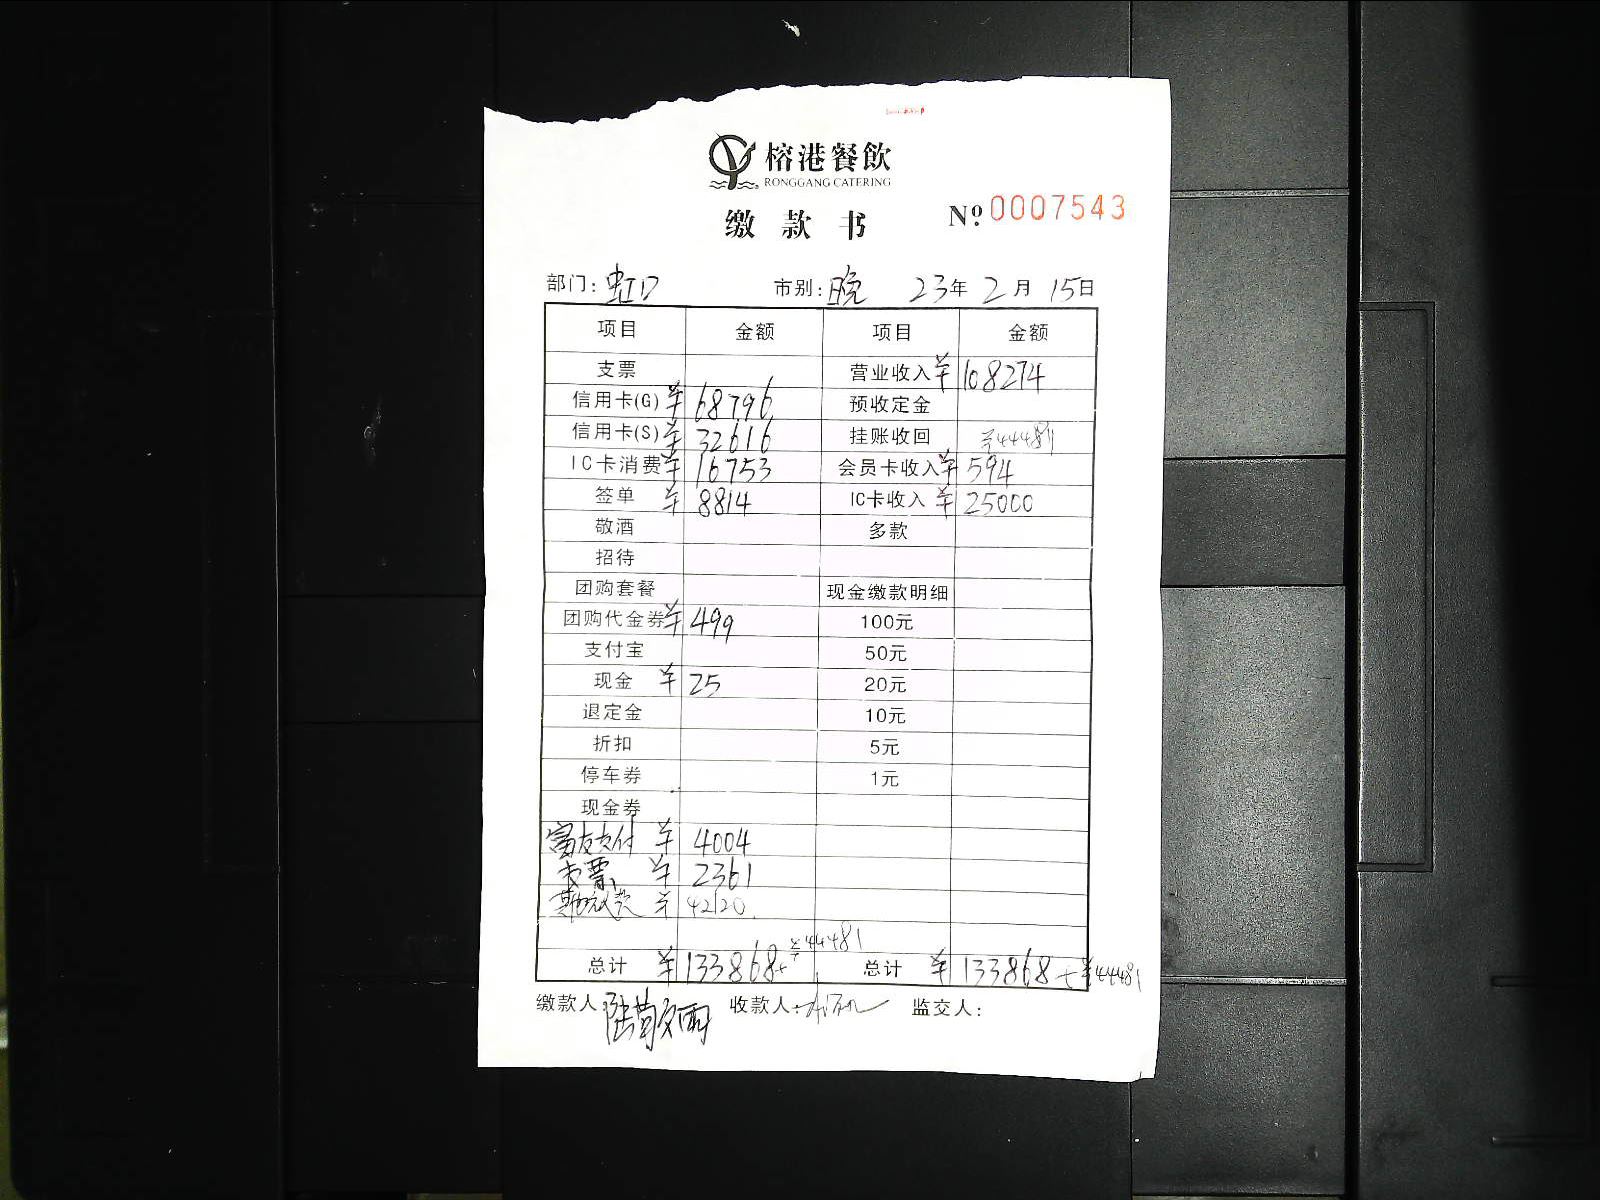 榕港餐飲
RONGGANG CATERING
缴款书 № 0007543
部门: 虹口 市别: 晚 23年 2月 15日
项目 金额 项目 金额
支票 营业收入 ¥108274
信用卡(G) ¥68796 预收定金
信用卡(S) ¥32616 挂账收回 ¥44481
IC卡消费 ¥16753 会员卡收入 ¥594
签单 ¥8814 IC卡收入 ¥25000
敬酒 多款
招待
团购套餐 现金缴款明细
团购代金券 ¥499 100元
支付宝 50元
现金 ¥25 20元
退定金 10元
折扣 5元
停车券 1元
现金券
富友支付 ¥4004
卡票 ¥2361
¥42120
¥44481
总计 ¥133868+ 总计 ¥133868+¥44481
缴款人: 陆敬雨 收款人: 监交人: